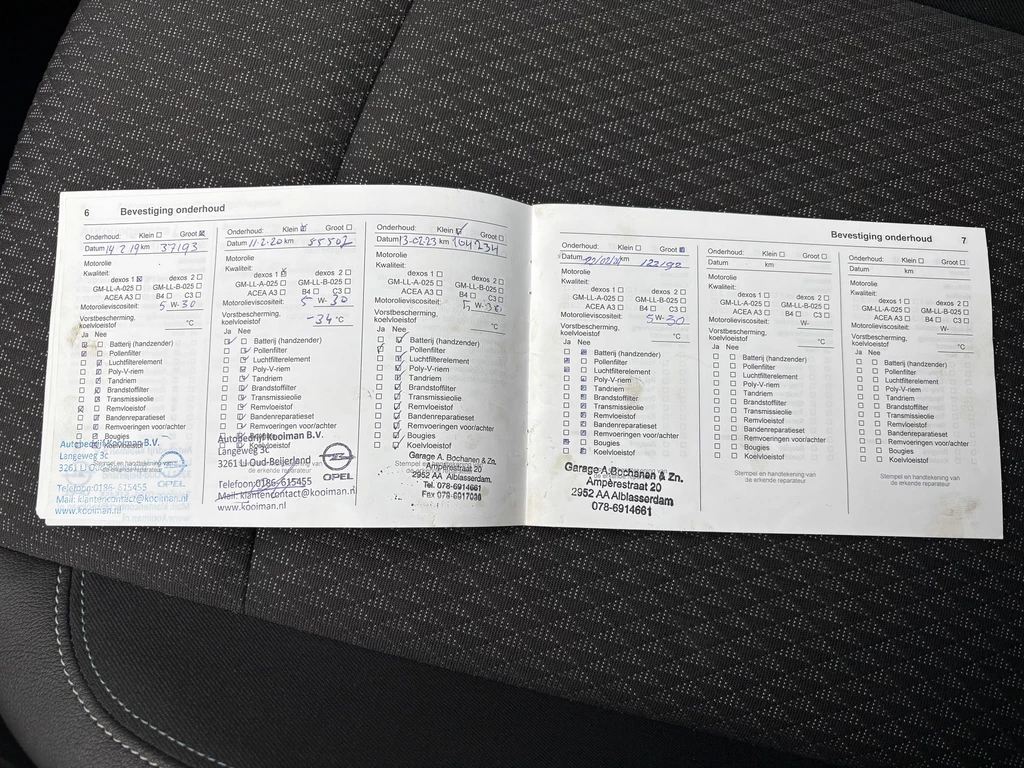 6 Bevestiging onderhoud
Onderhoud: Klein Groot
Datum 14 2 19 km 37193
Motorolie
Kwaliteit:
dexos 1 dexos 2
GM-LL-A-025 GM-LL-B-025
ACEA A3 B4 C3
Motorolieviscositeit: 5 W- 30
Vorstbescherming,
koelvloeistof °C
Ja Nee
Batterij (handzender)
Pollenfilter
Luchtfilterelement
Poly-V-riem
Tandriem
Brandstoffilter
Transmissieolie
Remvloeistof
Bandenreparatieset
Remvoeringen voor/achter
Bougies
Koelvloeistof
Autobedrijf Kooiman B.V.
Langeweg 3c
3261 LJ Oud-Beijerland
OPEL
Telefoon:0186-615455
Mail: klantencontact@kooiman.nl
www.kooiman.nl
Onderhoud: Klein Groot
Datum 11-2-20 km 55502
Motorolie
Kwaliteit:
dexos 1 dexos 2
GM-LL-A-025 GM-LL-B-025
ACEA A3 B4 C3
Motorolieviscositeit: 5 W- 30
Vorstbescherming,
koelvloeistof -34 °C
Ja Nee
Batterij (handzender)
Pollenfilter
Luchtfilterelement
Poly-V-riem
Tandriem
Brandstoffilter
Transmissieolie
Remvloeistof
Bandenreparatieset
Remvoeringen voor/achter
Bougies
Koelvloeistof
Autobedrijf Kooiman B.V.
Langeweg 3c
3261 LJ Oud-Beijerland
de erkende reparateur
OPEL
Telefoon:0186-615455
Mail: klantencontact@kooiman.nl
www.kooiman.nl
Onderhoud: Klein Groot
Datum 13-02-23 km 104234
Motorolie
Kwaliteit:
dexos 1 dexos 2
GM-LL-A-025 GM-LL-B-025
ACEA A3 B4 C3
Motorolieviscositeit: 5 W-30
Vorstbescherming,
koelvloeistof °C
Ja Nee
Batterij (handzender)
Pollenfilter
Luchtfilterelement
Poly-V-riem
Tandriem
Brandstoffilter
Transmissieolie
Remvloeistof
Bandenreparatieset
Remvoeringen voor/achter
Bougies
Koelvloeistof
Garage A. Bochanen & Zn.
Ampèrestraat 20
2952 AA Alblasserdam
Tel. 078-6914661
Fax 078-6917038
Bevestiging onderhoud 7
Onderhoud: Klein Groot
Datum km 122192
Motorolie
Kwaliteit:
dexos 1 dexos 2
GM-LL-A-025 GM-LL-B-025
ACEA A3 B4 C3
Motorolieviscositeit: 5W-30
Vorstbescherming,
koelvloeistof °C
Ja Nee
Batterij (handzender)
Pollenfilter
Luchtfilterelement
Poly-V-riem
Tandriem
Brandstoffilter
Transmissieolie
Remvloeistof
Bandenreparatieset
Remvoeringen voor/achter
Bougies
Koelvloeistof
Garage A.Bochanen & Zn.
Ampèrestraat 20
2952 AA Alblasserdam
078-6914661
Onderhoud: Klein Groot
Datum km
Motorolie
Kwaliteit:
dexos 1 dexos 2
GM-LL-A-025 GM-LL-B-025
ACEA A3 B4 C3
Motorolieviscositeit: W-
Vorstbescherming,
koelvloeistof °C
Ja Nee
Batterij (handzender)
Pollenfilter
Luchtfilterelement
Poly-V-riem
Tandriem
Brandstoffilter
Transmissieolie
Remvloeistof
Bandenreparatieset
Remvoeringen voor/achter
Bougies
Koelvloeistof
Stempel en handtekening van
de erkende reparateur
Onderhoud: Klein Groot
Datum km
Motorolie
Kwaliteit:
dexos 1 dexos 2
GM-LL-A-025 GM-LL-B-025
ACEA A3 B4 C3
Motorolieviscositeit: W-
Vorstbescherming,
koelvloeistof °C
Ja Nee
Batterij (handzender)
Pollenfilter
Luchtfilterelement
Poly-V-riem
Tandriem
Brandstoffilter
Transmissieolie
Remvloeistof
Bandenreparatieset
Remvoeringen voor/achter
Bougies
Koelvloeistof
Stempel en handtekening van
de erkende reparateur